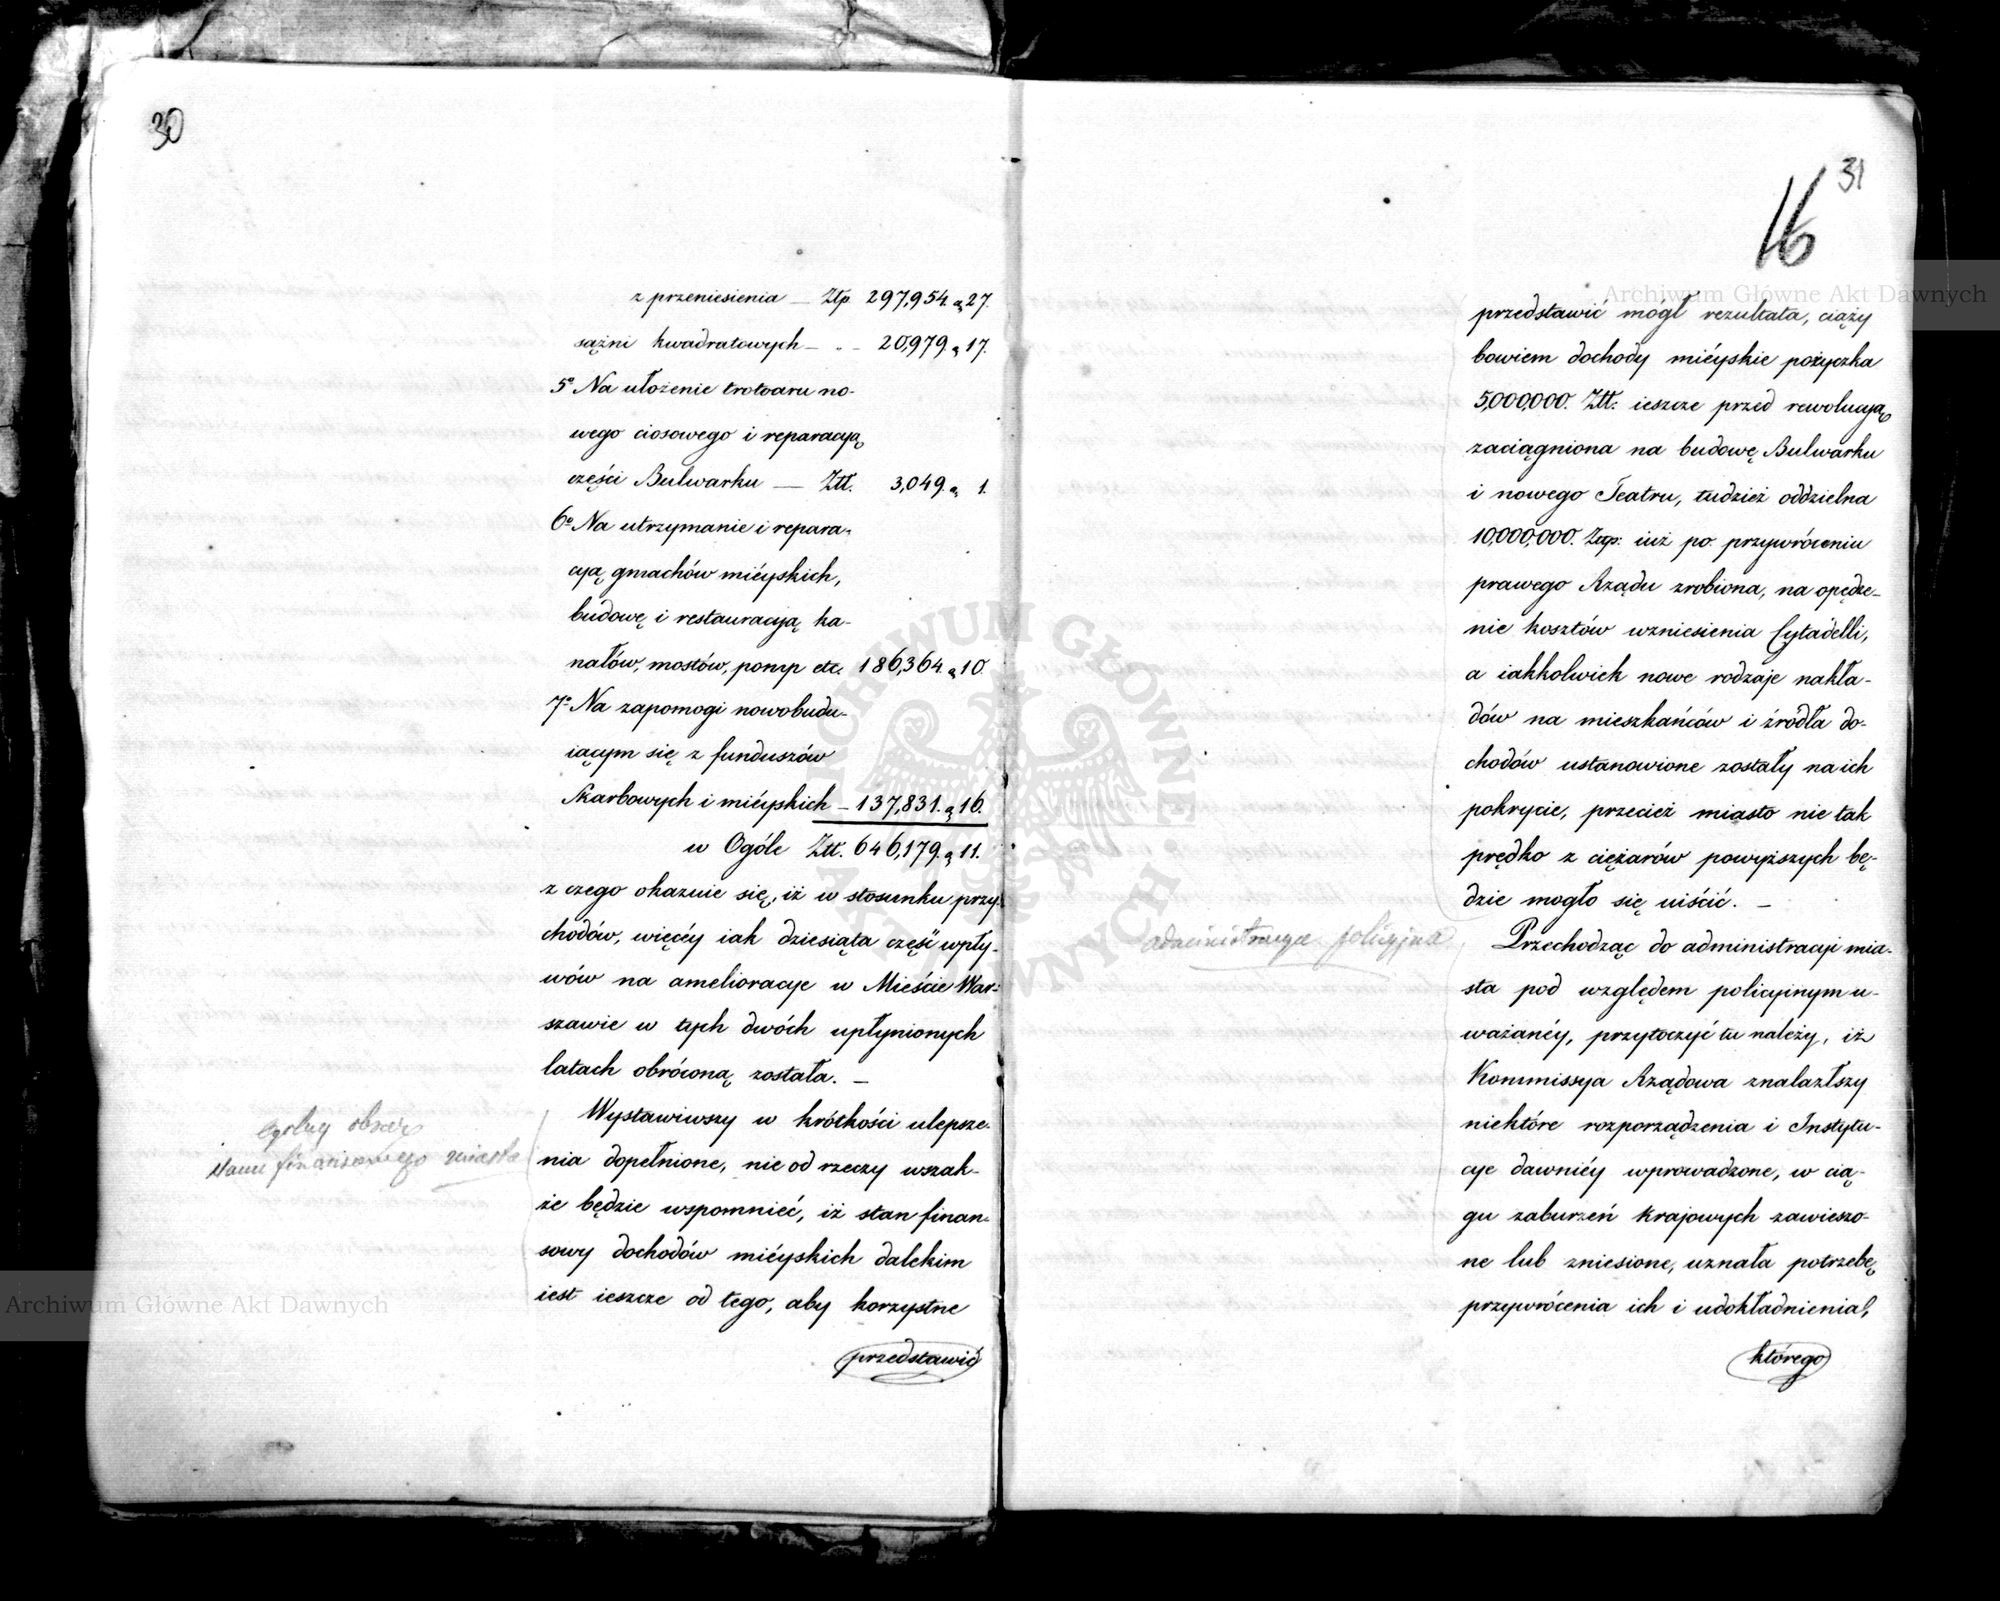 30
z przeniesienia — Ztp. 297,954. g 27.
sążni kwadratowych — „ — 20,979. g 17.
5° Na ułożenie trotoaru no-
wego ciosowego i reparacyą
części Bulwarku — Ztt. 3,049. g 1.
6° Na utrzymanie i repara-
cyą gmachów mićyskich,
budowę i restauracyją ka-
nałów, mostów, pomp etc. 186,364. g 10.
7° Na zapomogi nowobudu-
iącym się z funduszów
Skarbowych i mićyskich — 137,831. g 16.
w Ogóle Ztt. 646,179. g 11.
z czego okazuie się, iż w stosunku przy-
chodów, więcéy iak dziesiąta część wpły-
wów na amelioracye w Mieście War-
szawie w tych dwóch upłynionych
latach obróconą została. —
ogólny obraz
stanu finansowego miasta
Wystawiwszy w krótkości ulepsze-
nia dopełnione, nie od rzeczy wszak-
że będzie wspomnieć, iż stan finan-
sowy dochodów mićyskich dalekim
iest ieszcze od tego, aby korzystne
przedstawić
31
16
przedstawić mógł rezultata, ciąży
bowiem dochody mićyskie pożyczka
5,000,000. Ztt. ieszcze przed rewolucyą
zaciągniona na budowę Bulwarku
i nowego Teatru, tudzież oddzielna
10,000,000. Ztp: iuż po przywróceniu
prawego Rządu zrobiona, na opędze-
nie kosztów wzniesienia Cytadelli,
a iakkolwiek nowe rodzaje nakła-
dów na mieszkańców i źródła do-
chodów ustanowione zostały na ich
pokrycie, przecież miasto nie tak
prędko z ciężarów powyższych bę-
dzie mogło się uiścić. —
administracya policyjna
Przechodząc do administracyi mia-
sta pod względem policyinym u-
ważanéy, przytoczyć tu należy, iż
Kommissya Rządowa znalazłszy
niektóre rozporządzenia i Instytu-
cye dawniéy wprowadzone, w cią-
gu zaburzeń krajowych zawieszo-
ne lub zniesione, uznała potrzebę
przywrócenia ich i udokładnienia,
którego
Archiwum Główne Akt Dawnych
Archiwum Główne Akt Dawnych
ARCHIWUM GŁÓWNE AKT DAWNYCH